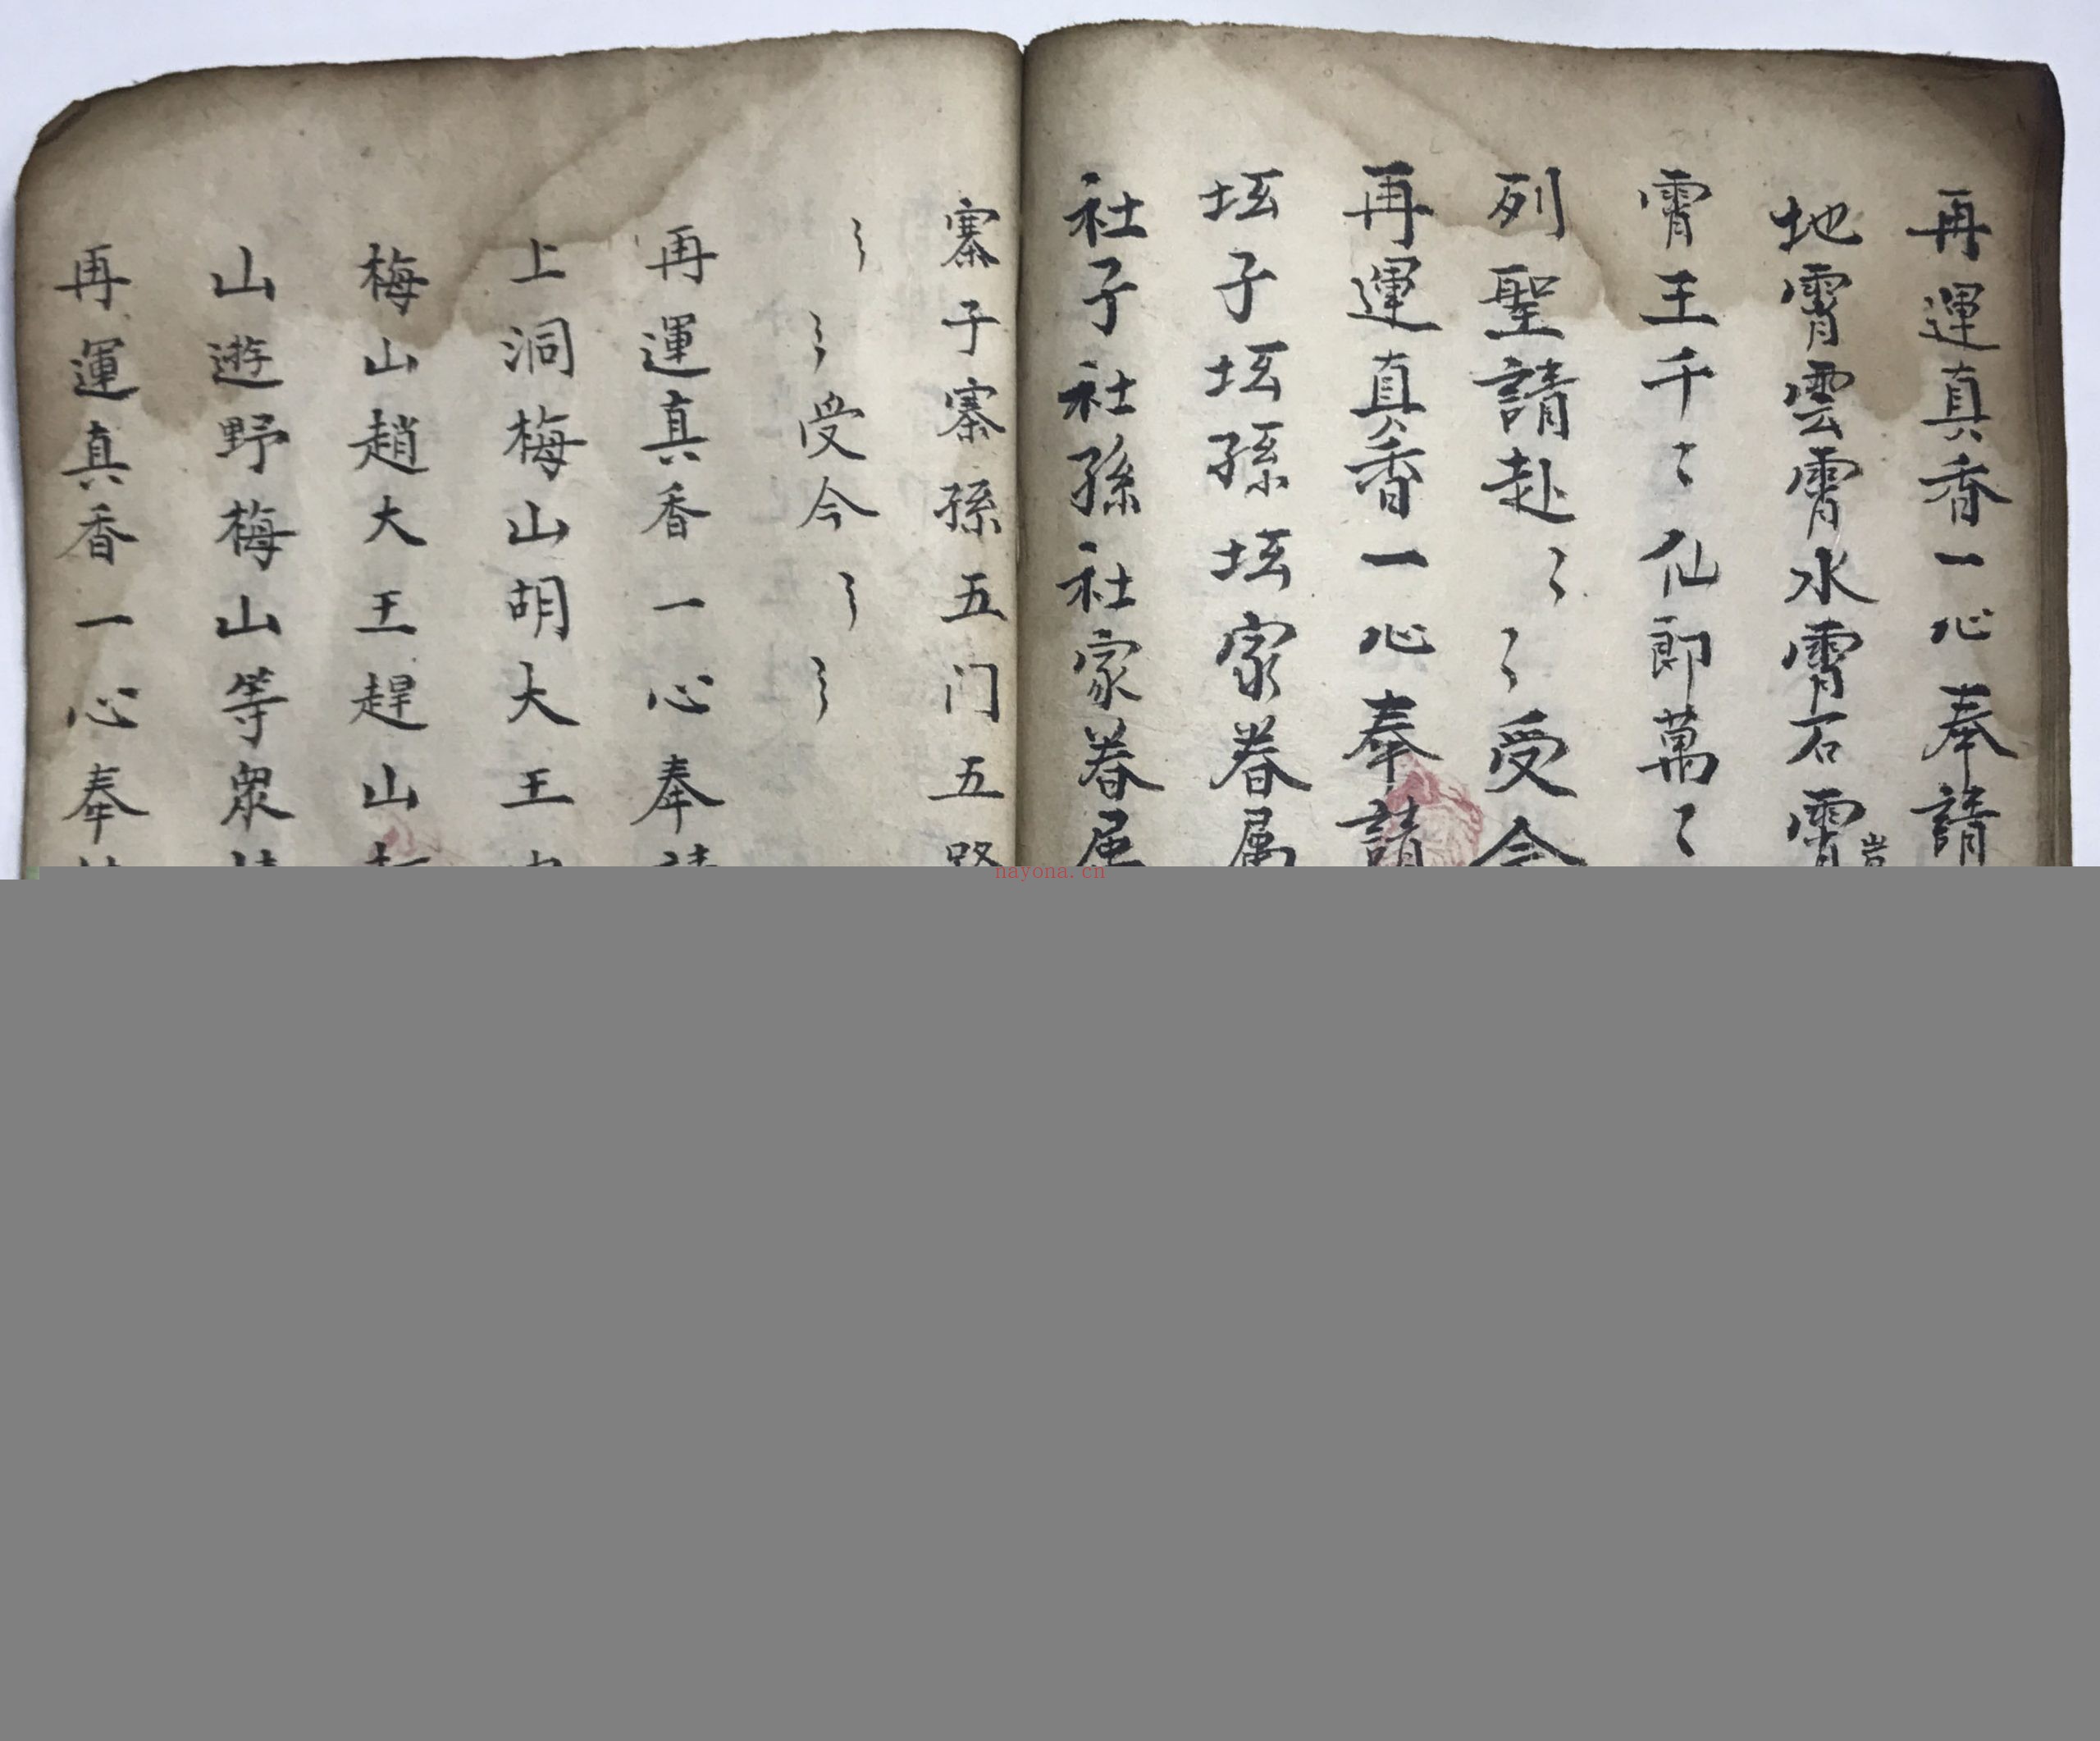 再運真香一心奉請
地霄雲霄水霄石霄
霄王千〻仙郎萬〻
列聖請赴〻〻受今
再運真香一心奉請
坛子坛孫坛家眷属
社子社孫社家眷属
寨子寨孫五门五路
〻〻受今〻〻
再運真香一心奉請
上洞梅山胡大王
梅山趙大王趕山
山遊野梅山等衆
再運真香一心奉
nayona.cn